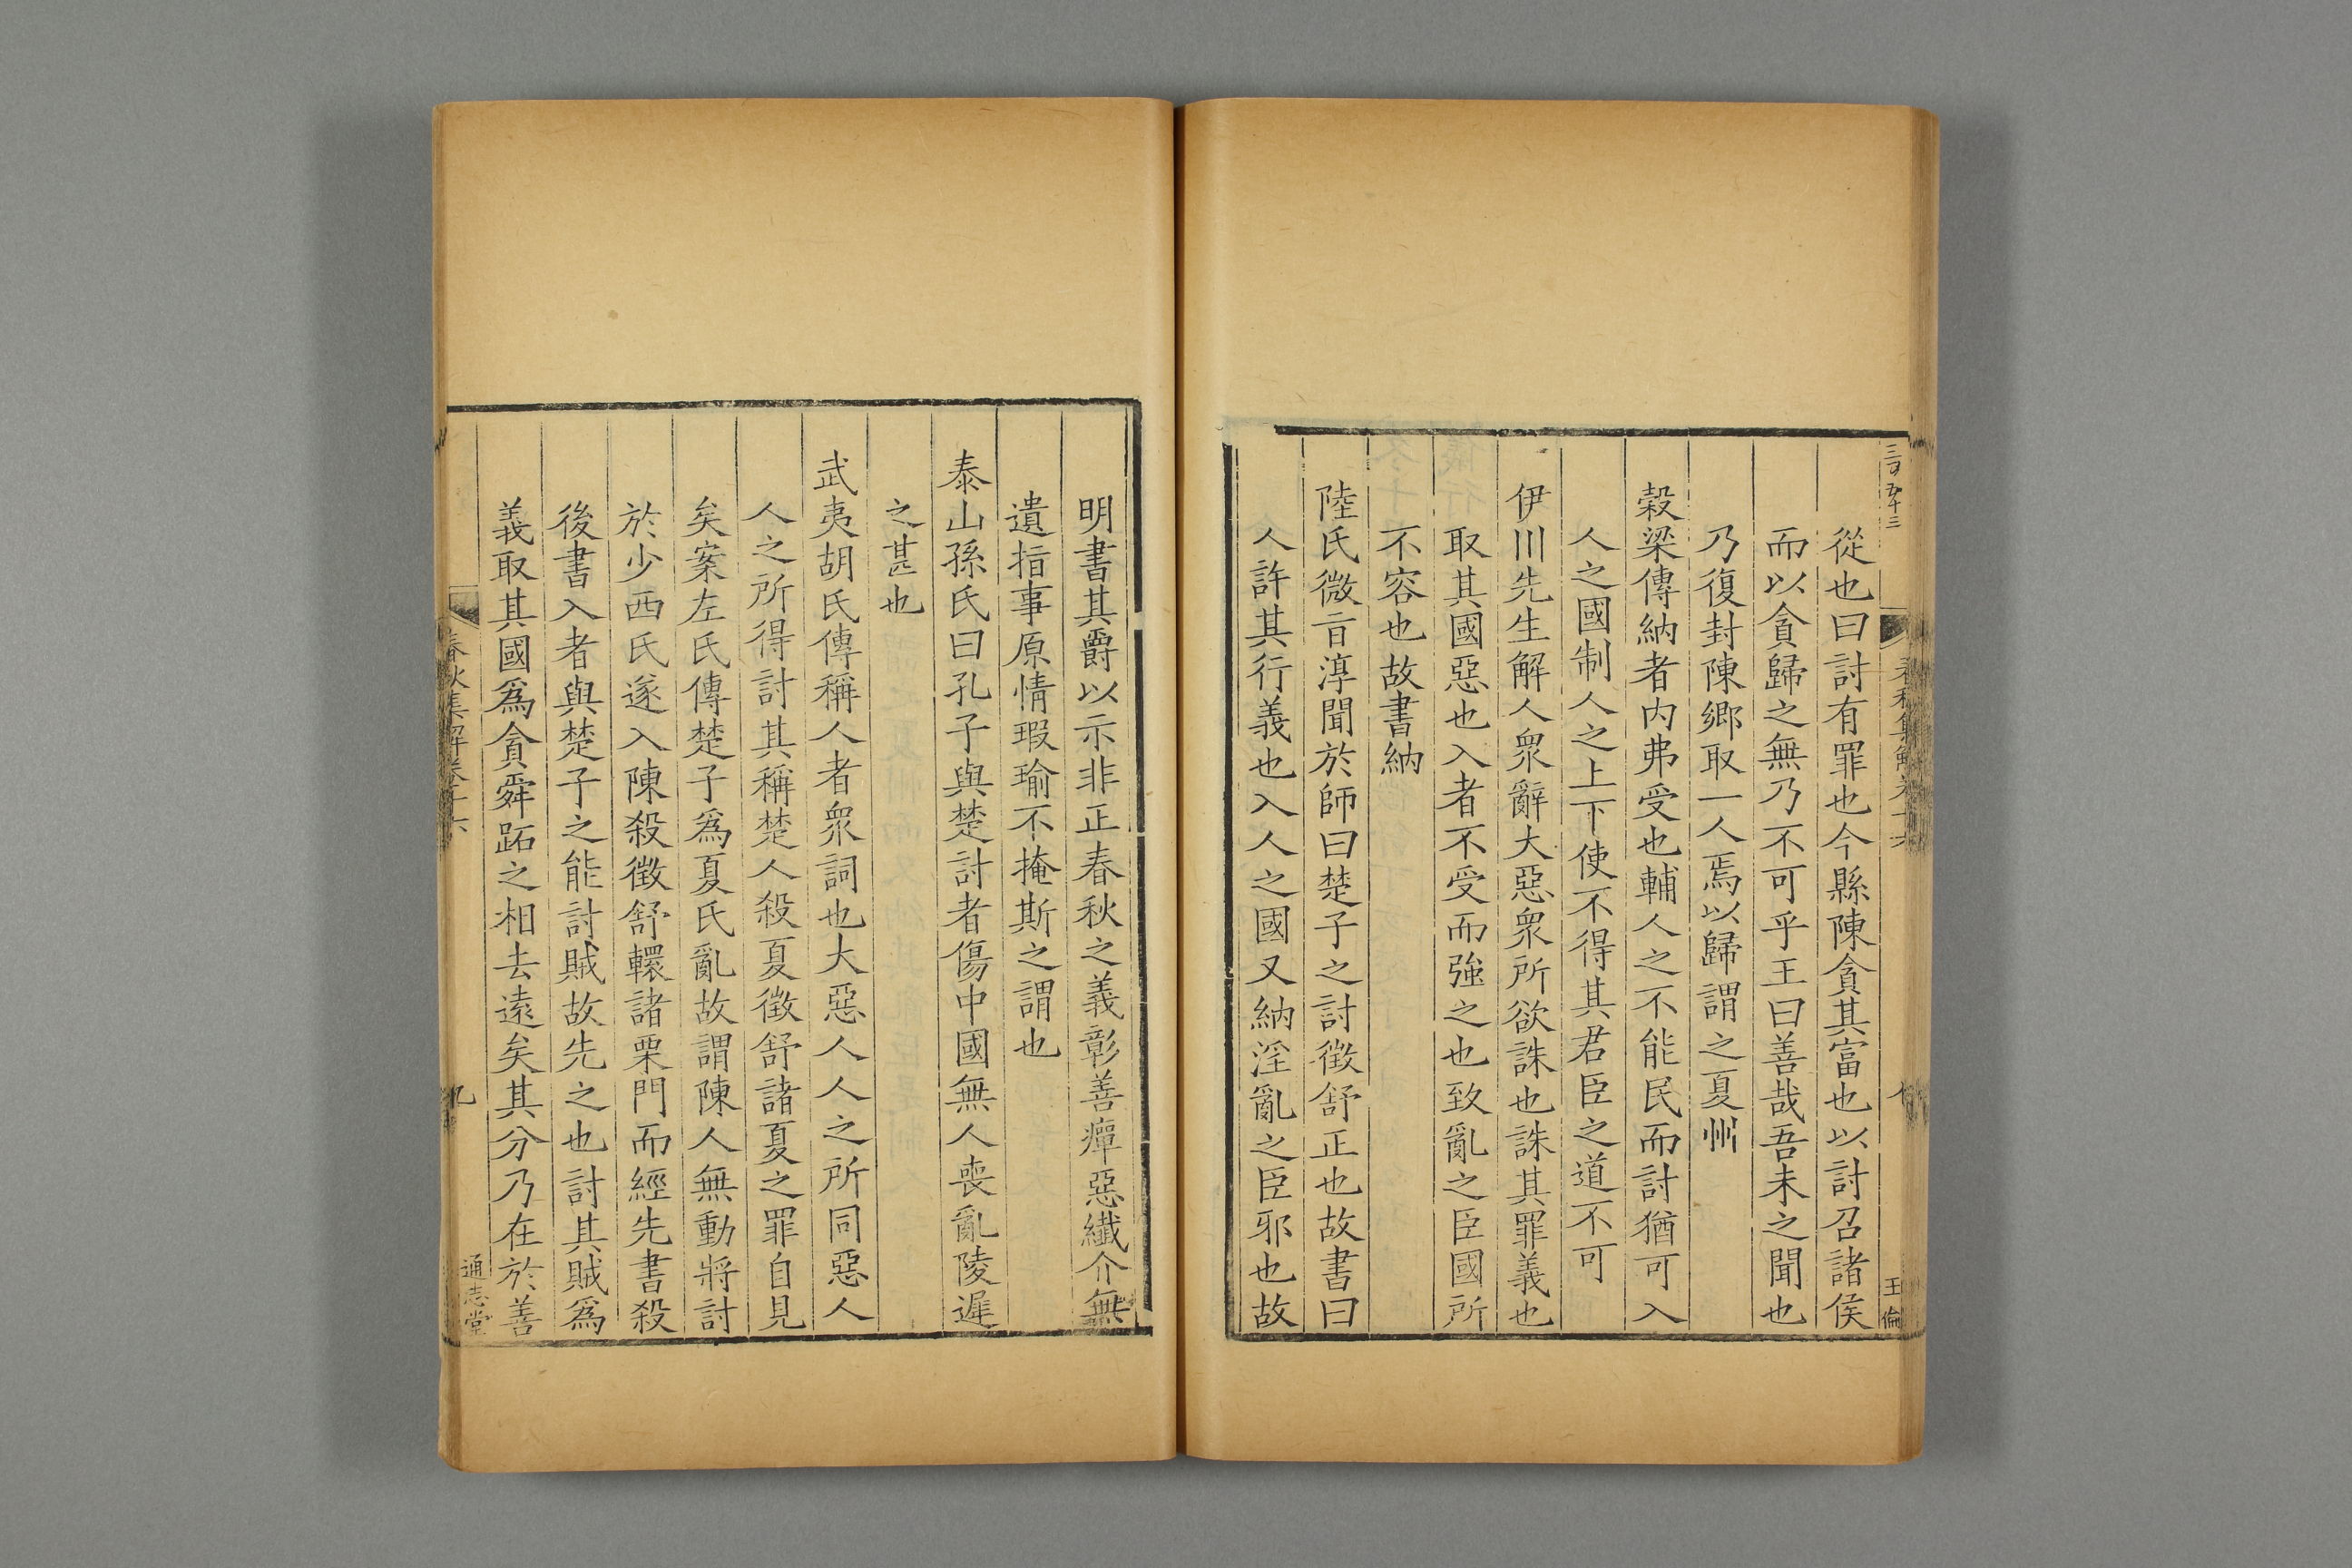 三百五十三
王倫
從也曰討有罪也今縣陳貪其富也以討召諸侯
而以貪歸之無乃不可乎王曰善哉吾未之聞也
乃復封陳鄉取一人焉以歸謂之夏州
穀梁傳納者内弗受也輔人之不能民而討猶可入
人之國制人之上下使不得其君臣之道不可
伊川先生解人衆辭大惡衆所欲誅也誅其罪義也
取其國惡也入者不受而強之也致亂之臣國所
不容也故書納
陸氏微旨淳聞於師曰楚子之討徵舒正也故書曰
人許其行義也入人之國又納淫亂之臣邪也故
明書其爵以示非正春秋之義彰善癉惡纖介無
遺指事原情瑕瑜不掩斯之謂也
泰山孫氏曰孔子與楚討者傷中國無人喪亂陵遲
之甚也
武夷胡氏傳稱人者衆詞也大惡人人之所同惡人
人之所得討其稱楚人殺夏徵舒諸夏之罪自見
矣案左氏傳楚子爲夏氏亂故謂陳人無動將討
於少西氏遂入陳殺徵舒轘諸栗門而經先書殺
後書入者與楚子之能討賊故先之也討其賊爲
義取其國爲貪舜跖之相去遠矣其分乃在於善
春秋集解卷十六
九
通志堂